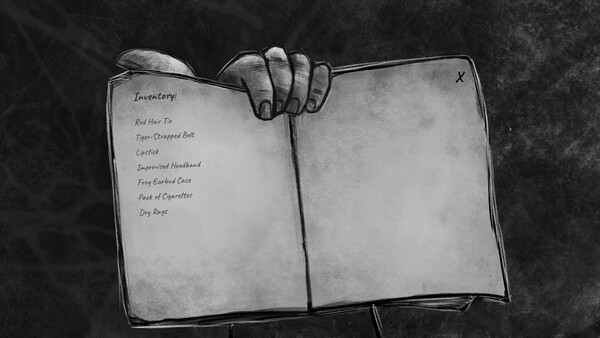 Inventory:
X
Red Hair Tie
Tiger-Strapped Belt
Lipstick
Improvised Headband
Frog Earbud Case
Pack of Cigarettes
Dry Rags